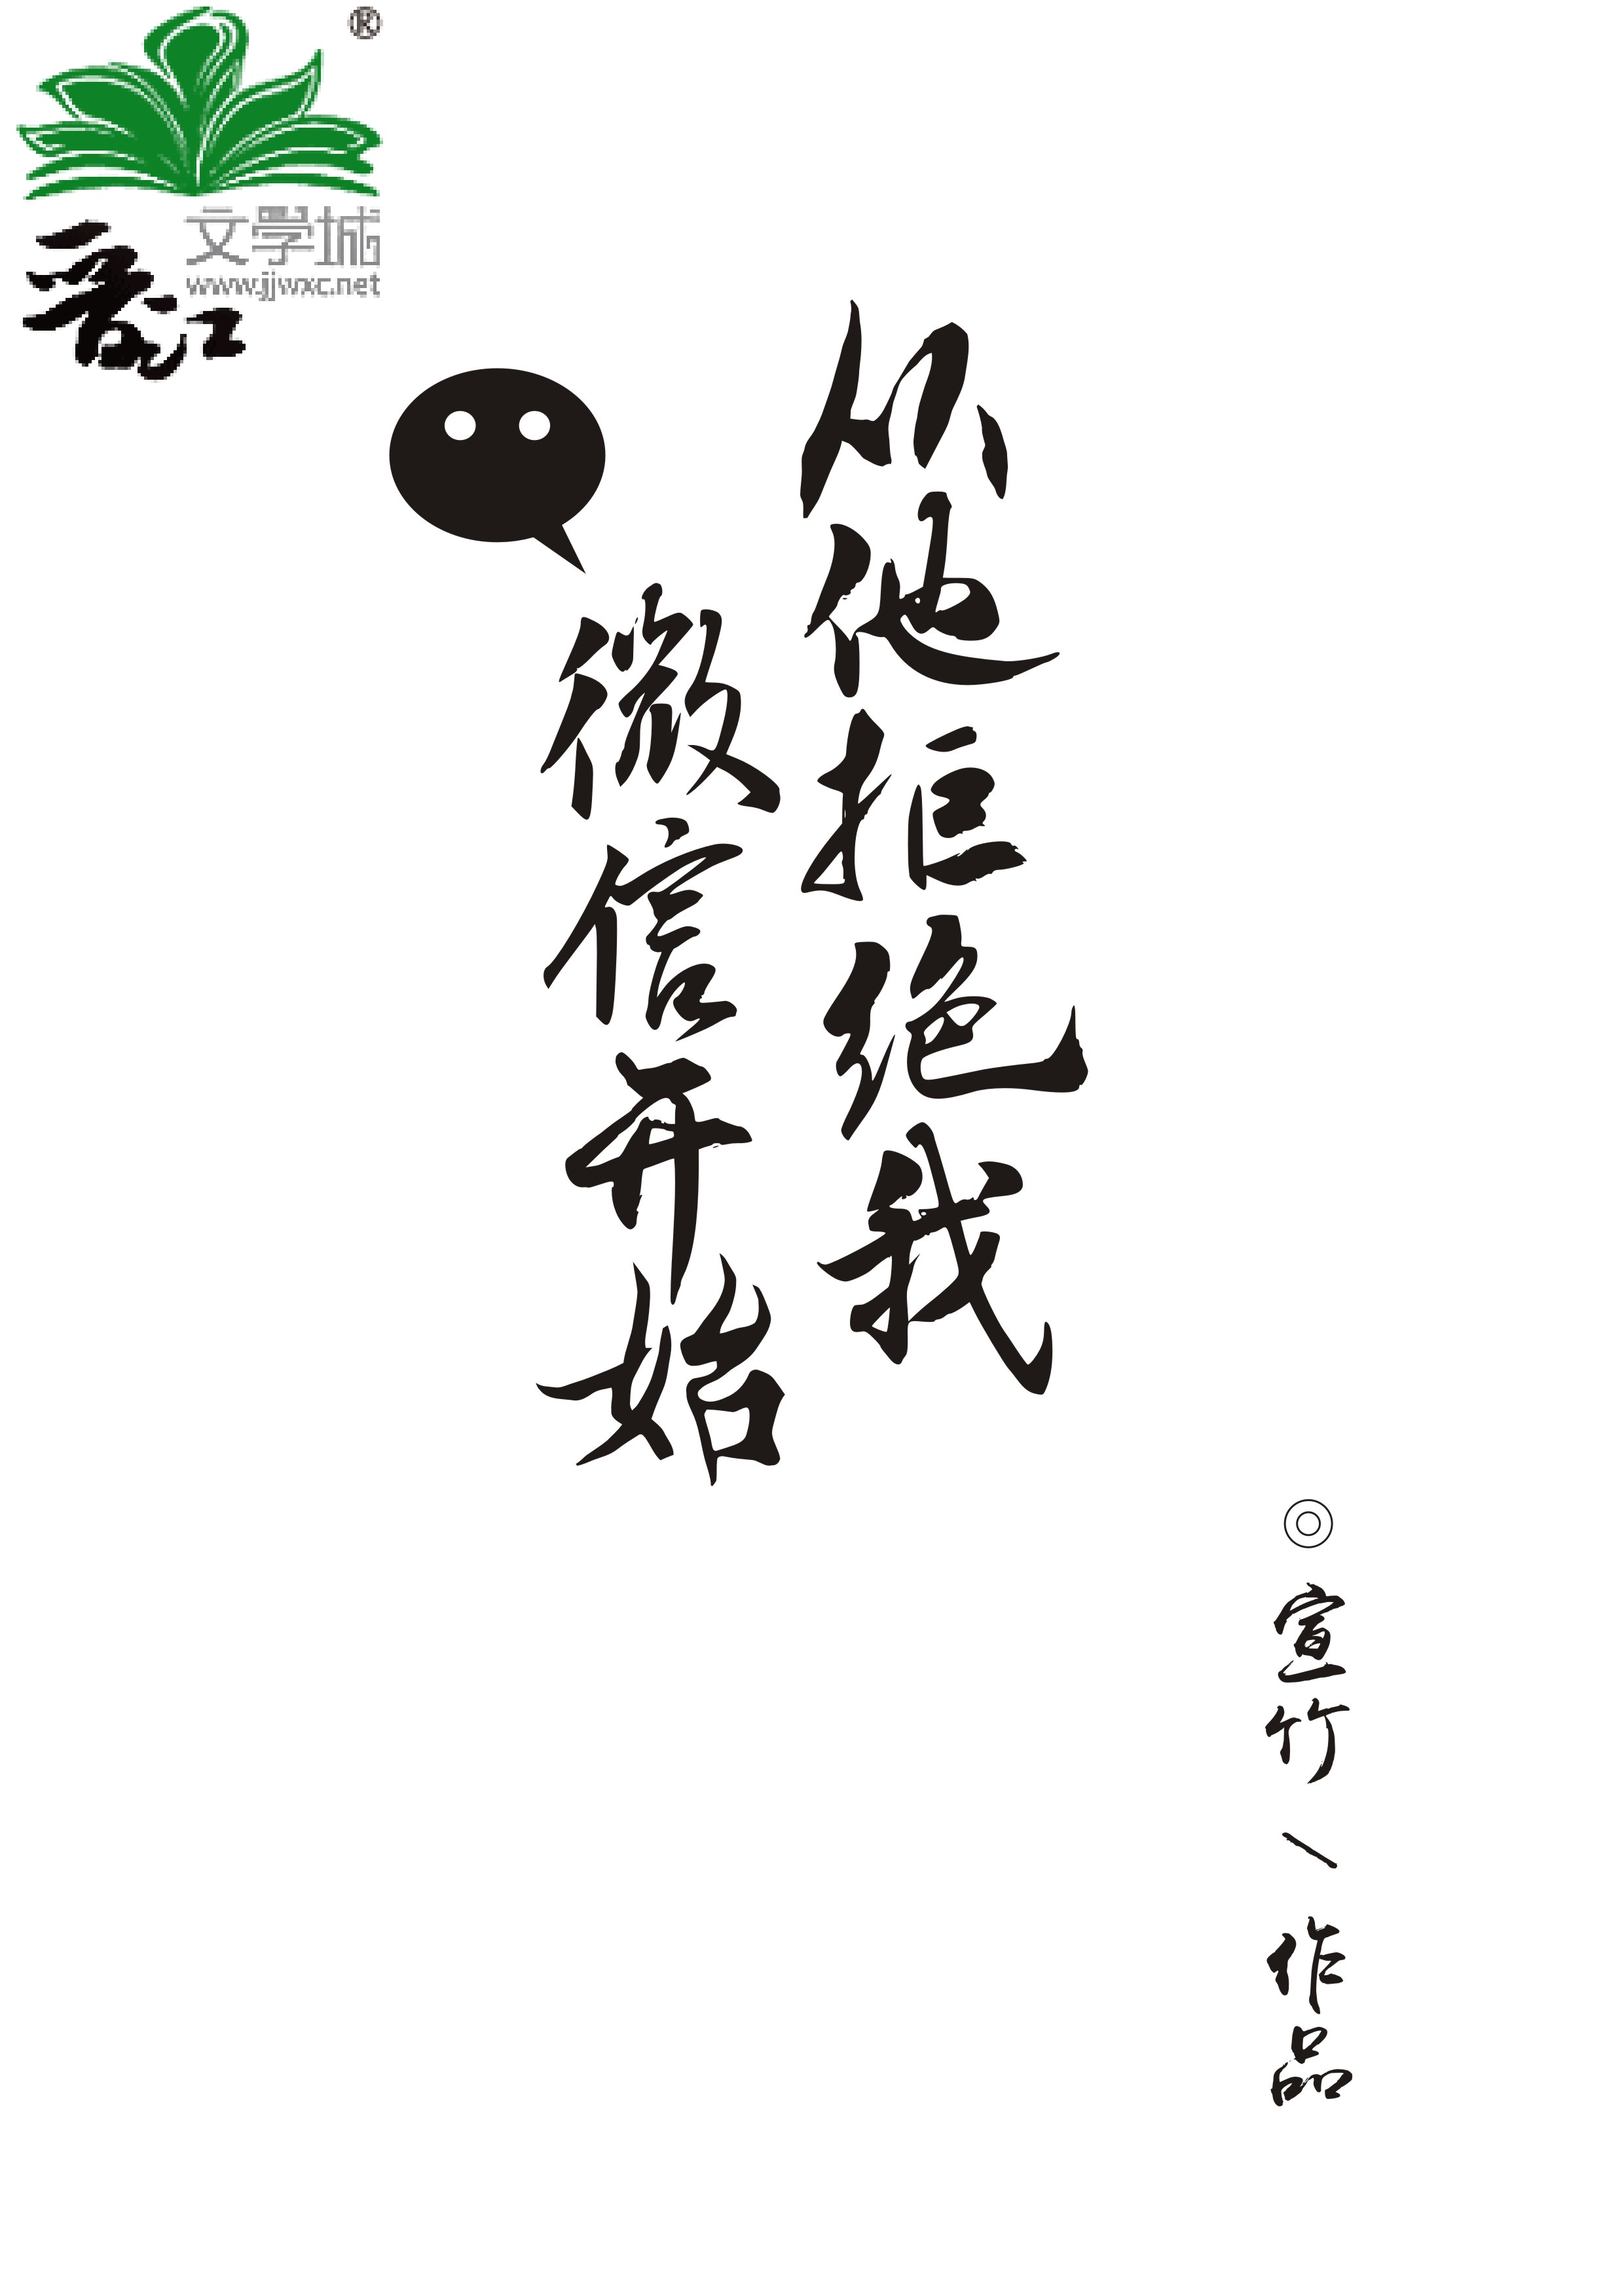 ®
文學城
www.jjwxc.net
晋江
从他拒绝我
微信开始
◎宣竹\作品